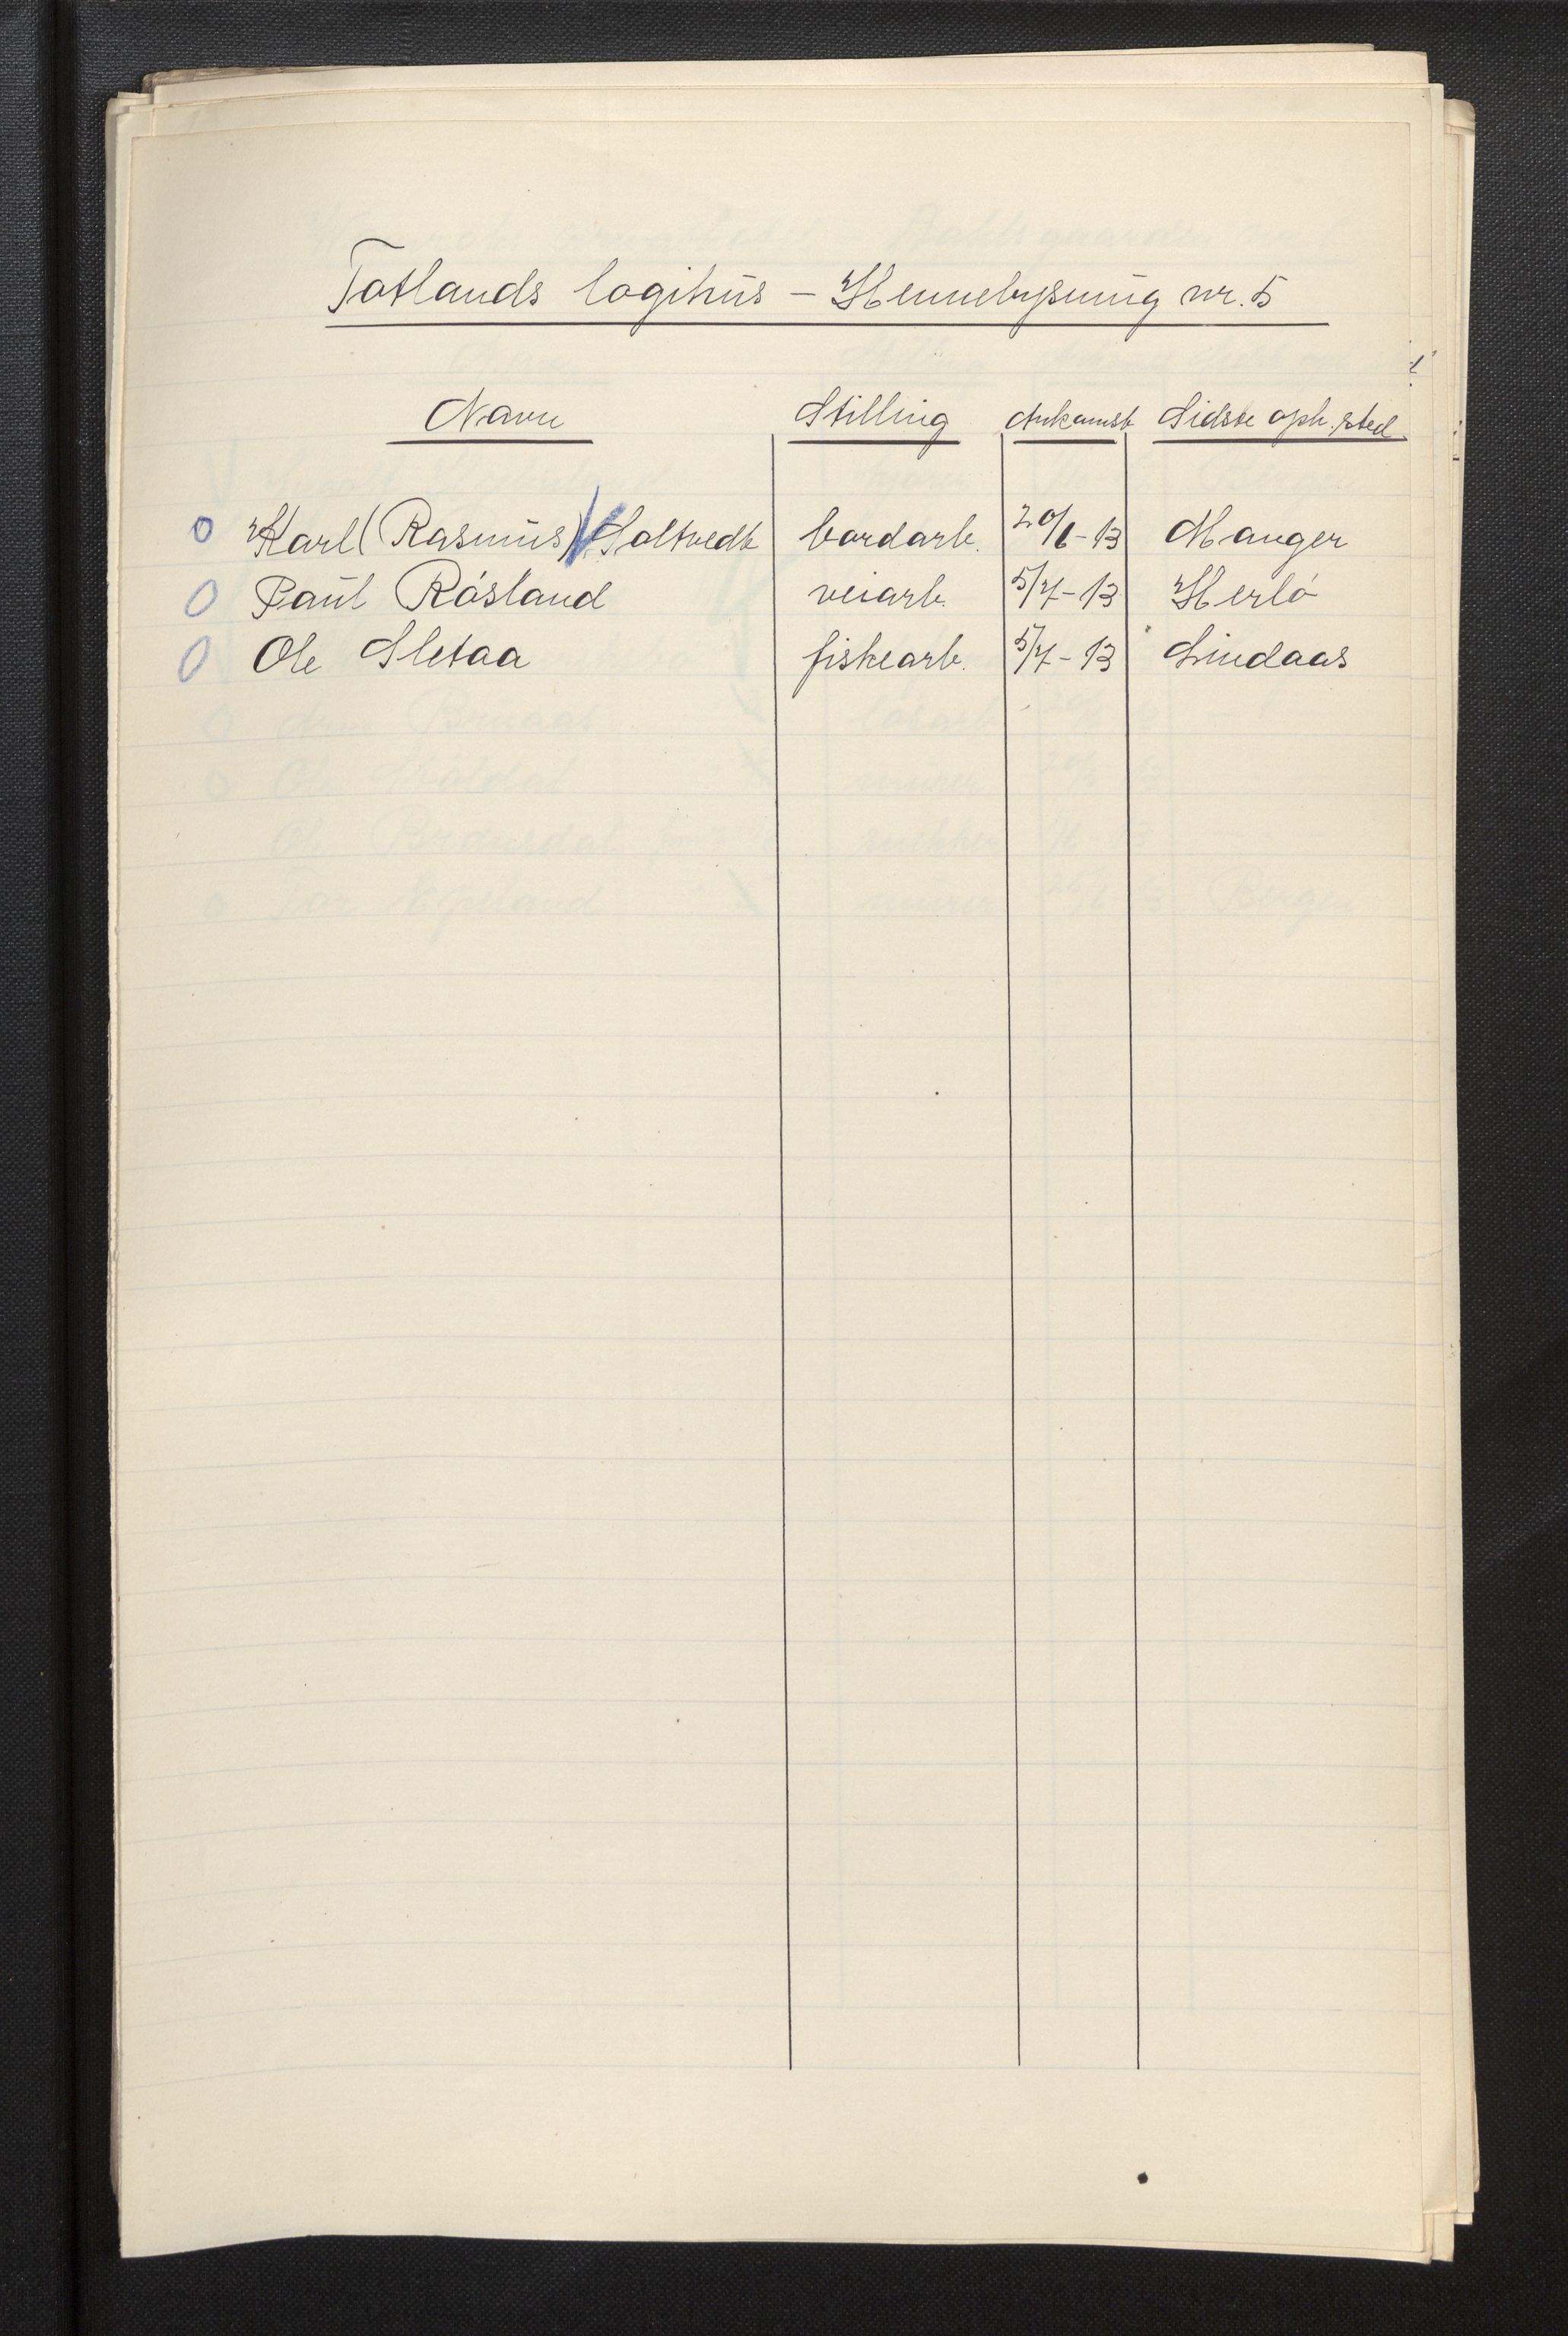 Totlands logihus – Hennebysmug nr. 5
Navn Stilling Ankomst Sidste oph. sted
Karl (Rasmus) Soltvedt bordarb. 20/6-13 Manger
Paul Røsland veiarb. 5/7-13 Herlø
Ole Sletaa fiskearb. 5/7-13 Lindaas